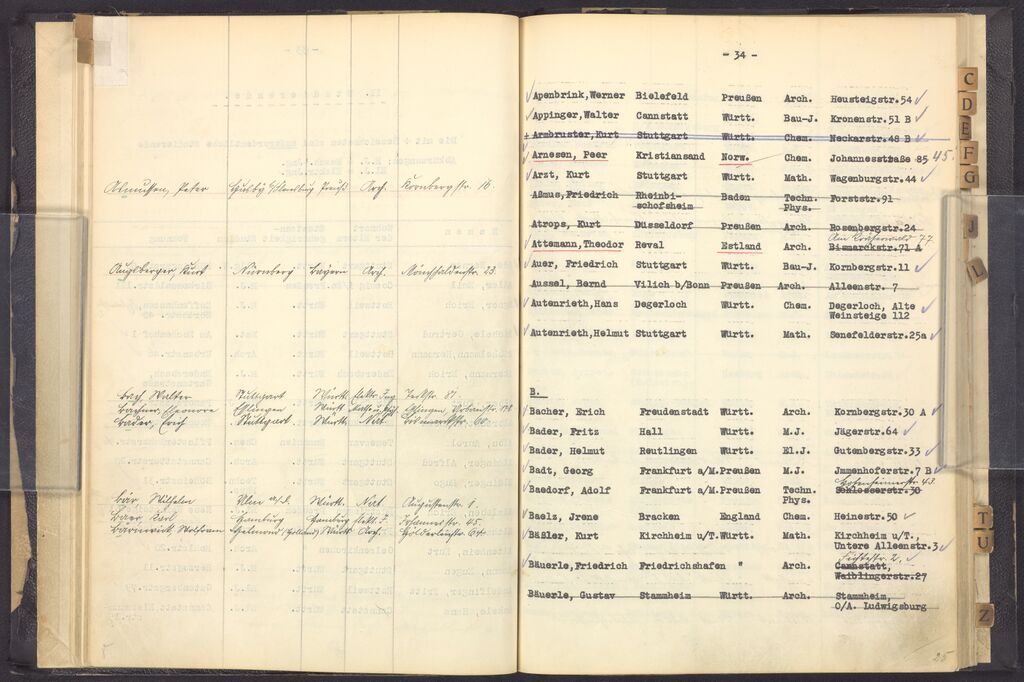 Asmussen, Peter Husby Schleswig Preuß. Arch. Kornbergstr. 16.
Auglberger Kurt Nürnberg Bayern Arch. Mönchhaldenstr. 23.
Bach, Walter Stuttgart Württ. Elektr. Ing.
Bachner, Eleonore Eßlingen Württ.
Bader, Erich Stuttgart Württ. Nat.
Bär, Wilhelm Ulm a/d. Württ. Nat. Augustenstr. 1.
Baer Karl Hamburg Hamburg Johannesstr. 45.
Wolfram Helmond (Holland) Württ. Arch. Hölderlinstr. 64.
- 34 -
Apenbrink, Werner Bielefeld Preußen Arch. Heusteigstr. 54
Appinger, Walter Cannstatt Württ. Bau-J. Kronenstr. 51 B
+ Armbruster, Kurt Stuttgart Württ. Chem. Neckarstr. 48 B
Arnesen, Peer Kristiansand Norw. Chem. Johannesstraße 85 45.
Arzt, Kurt Stuttgart Württ. Math. Wagenburgstr. 44
Aßmus, Friedrich Rheinbi- Baden Techn. Forststr. 91
schofsheim Phys.
Atrops, Kurt Düsseldorf Preußen Arch. Rosenbergstr. 24
Am Kräherwald 77
Attemann, Theodor Reval Estland Arch. Bismarckstr. 71 A
Auer, Friedrich Stuttgart Württ. Bau-J. Kornbergstr. 11
Aussel, Bernd Vilich b/Bonn Preußen Arch. Alleenstr. 7
Autenrieth, Hans Degerloch Württ. Chem. Degerloch, Alte
Weinsteige 112
Autenrieth, Helmut Stuttgart Württ. Math. Senefelderstr. 25a
B.
Bacher, Erich Freudenstadt Württ. Arch. Kornbergstr. 30 A
Bader, Fritz Hall Württ. M.J. Jägerstr. 64
Bader, Helmut Reutlingen Württ. El.J. Gutenbergstr. 33
Badt, Georg Frankfurt a/M. Preußen M.J. Jmmenhoferstr. 7 B
Baedorf, Adolf Frankfurt a/M. Preußen Techn. Schlosserstr. 30
Phys.
Baelz, Jrene Bracken England Chem. Heinestr. 50
Bäßler, Kurt Kirchheim u/T. Württ. Math. Kirchheim u/T.,
Untere Alleenstr. 3
Bäuerle, Friedrich Friedrichshafen " Arch. Cannstatt,
Waiblingerstr. 27
Bäuerle, Gustav Stammheim Württ. Arch. Stammheim,
O/A. Ludwigsburg
25
C
D
E
F
G
J
L
T
U
Z